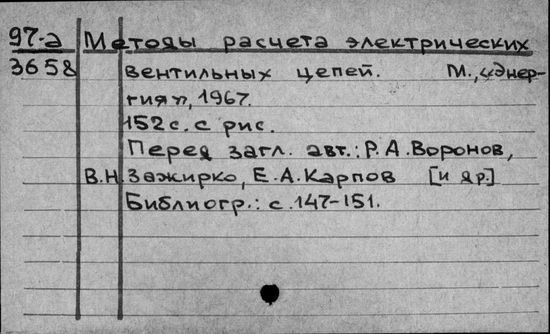 97-а Методы расчета электрических
3658 вентильных цепей. М., «Энер-
гия», 1967.
152 с. с рис.
Перед загл. авт.: Р.А.Воронов,
В.Н.Зажирко, Е.А.Карпов [и др.]
Библиогр.: с.147-151.